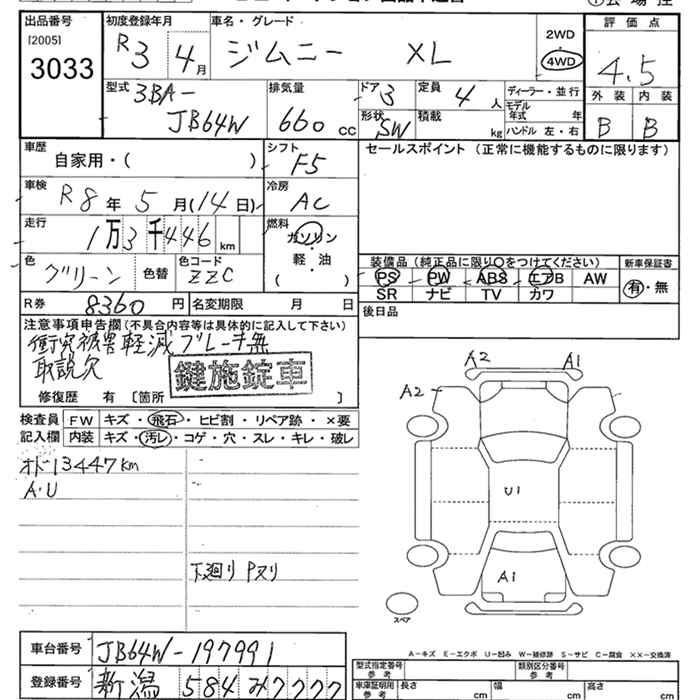 出品番号 [2005] 3033
初度登録年月 R3 4月
車名・グレード ジムニー XL
2WD
4WD
評価点 4.5
外装 内装
B B
型式 3BA-
JB64W
排気量 660 cc
ドア 3
形状 SW
定員 4 人
積載 kg
ディーラー・並行
モデル年式 年
ハンドル 左・右
車歴 自家用・( )
シフト F5
セールスポイント (正常に機能するものに限ります)
車検 R8年 5月(14日)
冷房 AC
走行 1万3千446 km
燃料 ガソリン
・
軽・油
( )
色 グリーン 色替
色コード ZZC
装備品 (純正品に限り○をつけてください)
新車保証書
PS PW ABS エアB AW
有・無
SR ナビ TV カワ
R券 8360円 名変期限 月 日
後日品
注意事項申告欄(不具合内容等は具体的に記入して下さい)
衝突被害軽減ブレーキ無
取説欠
鍵施錠車
修復歴 有 〔箇所 〕
検査員記入欄
FW キズ・飛石・ヒビ割・リペア跡・×要
内装 キズ・汚レ・コゲ・穴・スレ・キレ・破レ
オド13447km
A・U
下廻りPヌリ
A2 A1
A2
U1
A1
スペア
A-キズ E-エクボ U-凹み W-補修跡 S-サビ C-腐食 ××-交換済
車台番号 JB64W-197991
登録番号 新潟 584 み7777
型式指定番号 参考
類別区分番号 参考
車庫証明用 参考
長さ cm 幅 cm 高さ cm